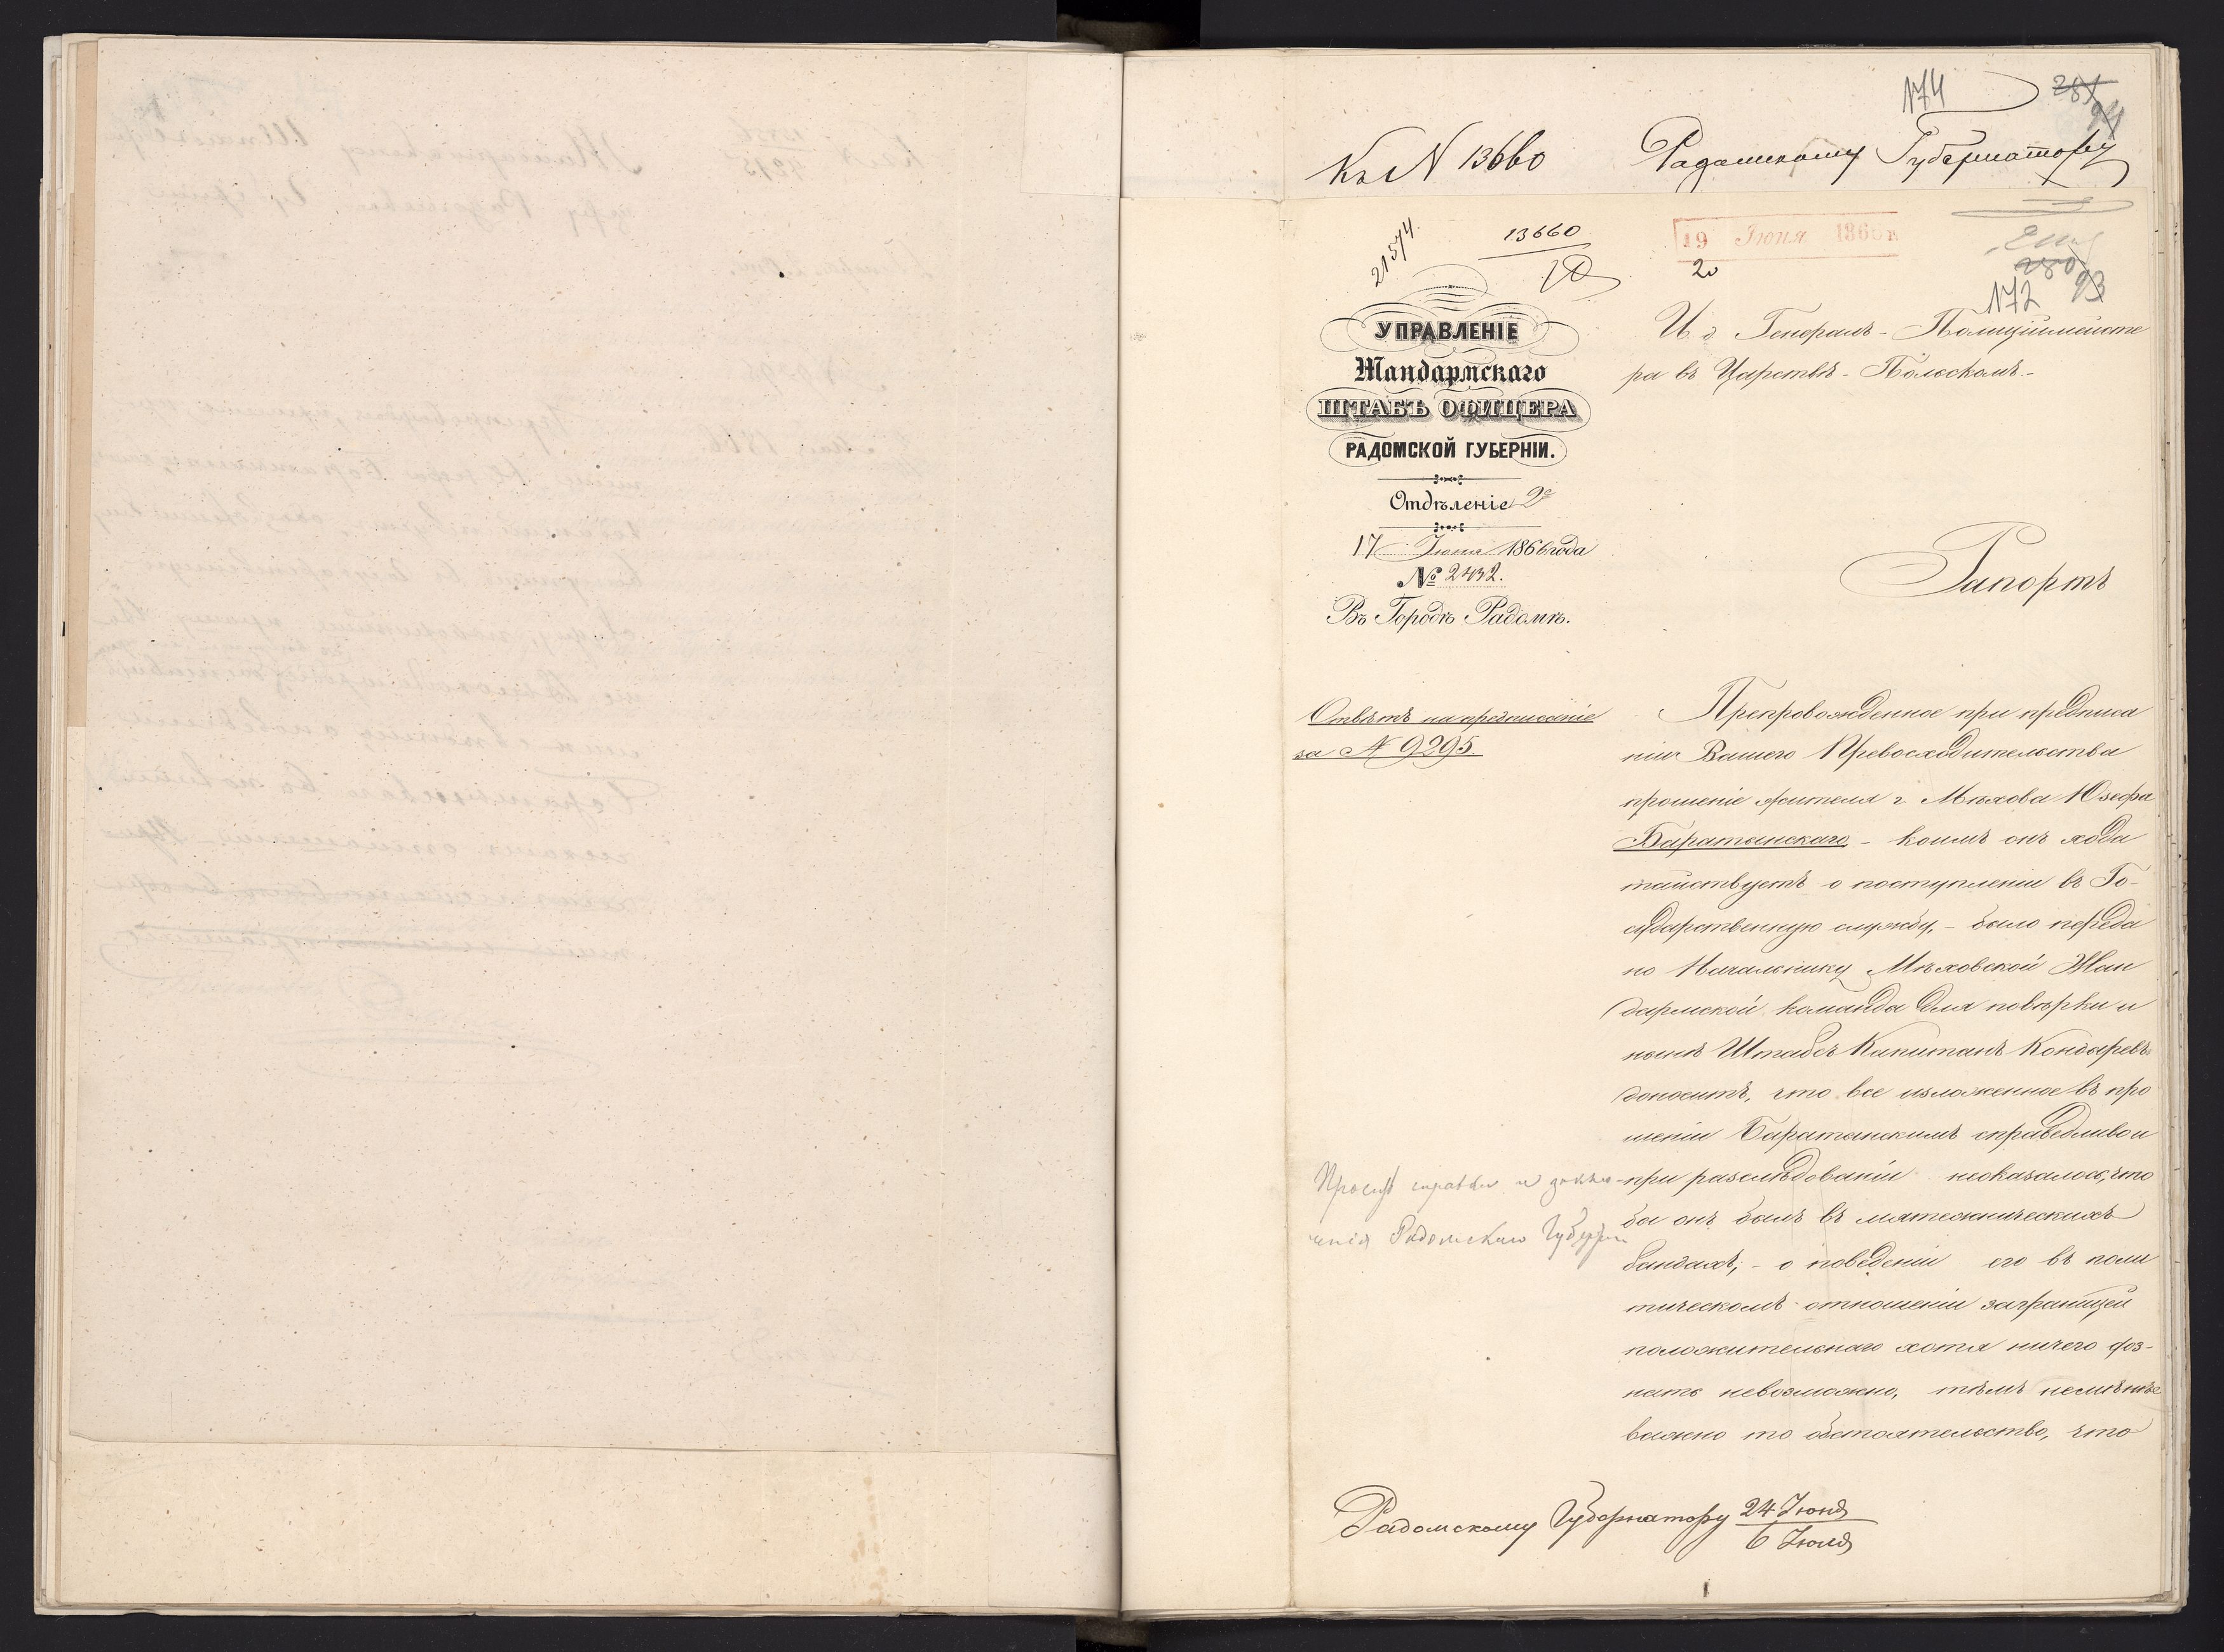 174
281
94
Къ N 13660 Радомскому Губернатору
21574
13660
19 Іюня 1866 г.
20
280
172 93
УПРАВЛЕНІЕ
Жандармскаго
ШТАБЪ ОФИЦЕРА
РАДОМСКОЙ ГУБЕРНІИ.
Отдѣленіе 2е
17 Іюня 1866 года
№ 2432.
Въ Городѣ Радомѣ.
И. д. Генералъ-Полиціймейсте
ра въ Царствѣ-Польскомъ.-
Рапортъ
Отвѣтъ на предписаніе
за N 9295.
Препровожденное при предписа
ніи Вашего Превосходительства
прошеніе жителя г. Мѣхова Юзефа
Баратынскаго, - коимъ онъ хода
тайствуетъ о поступленіи въ Го-
сударственную службу, - было переда
но Начальнику Мѣховской Жан
дармской команды для повѣрки и
нынѣ Штабсъ Капитанъ Кондыревъ
доноситъ, что все изложенное въ про
шеніи Баратынскимъ справедливо и
при разслѣдованіи неоказалось, что
бы онъ былъ въ мятежническихъ
бандахъ; - о поведеніи его въ поли
тическомъ отношеніи заграницей
положительнаго хотя ничего доз-
нать невозможно, тѣмъ неменѣе
важно то обстоятельство, что
Просить справки и заклю-
ченія Радомскаго Губерн
Радомскому Губернатору 24 Іюня
6 Іюля